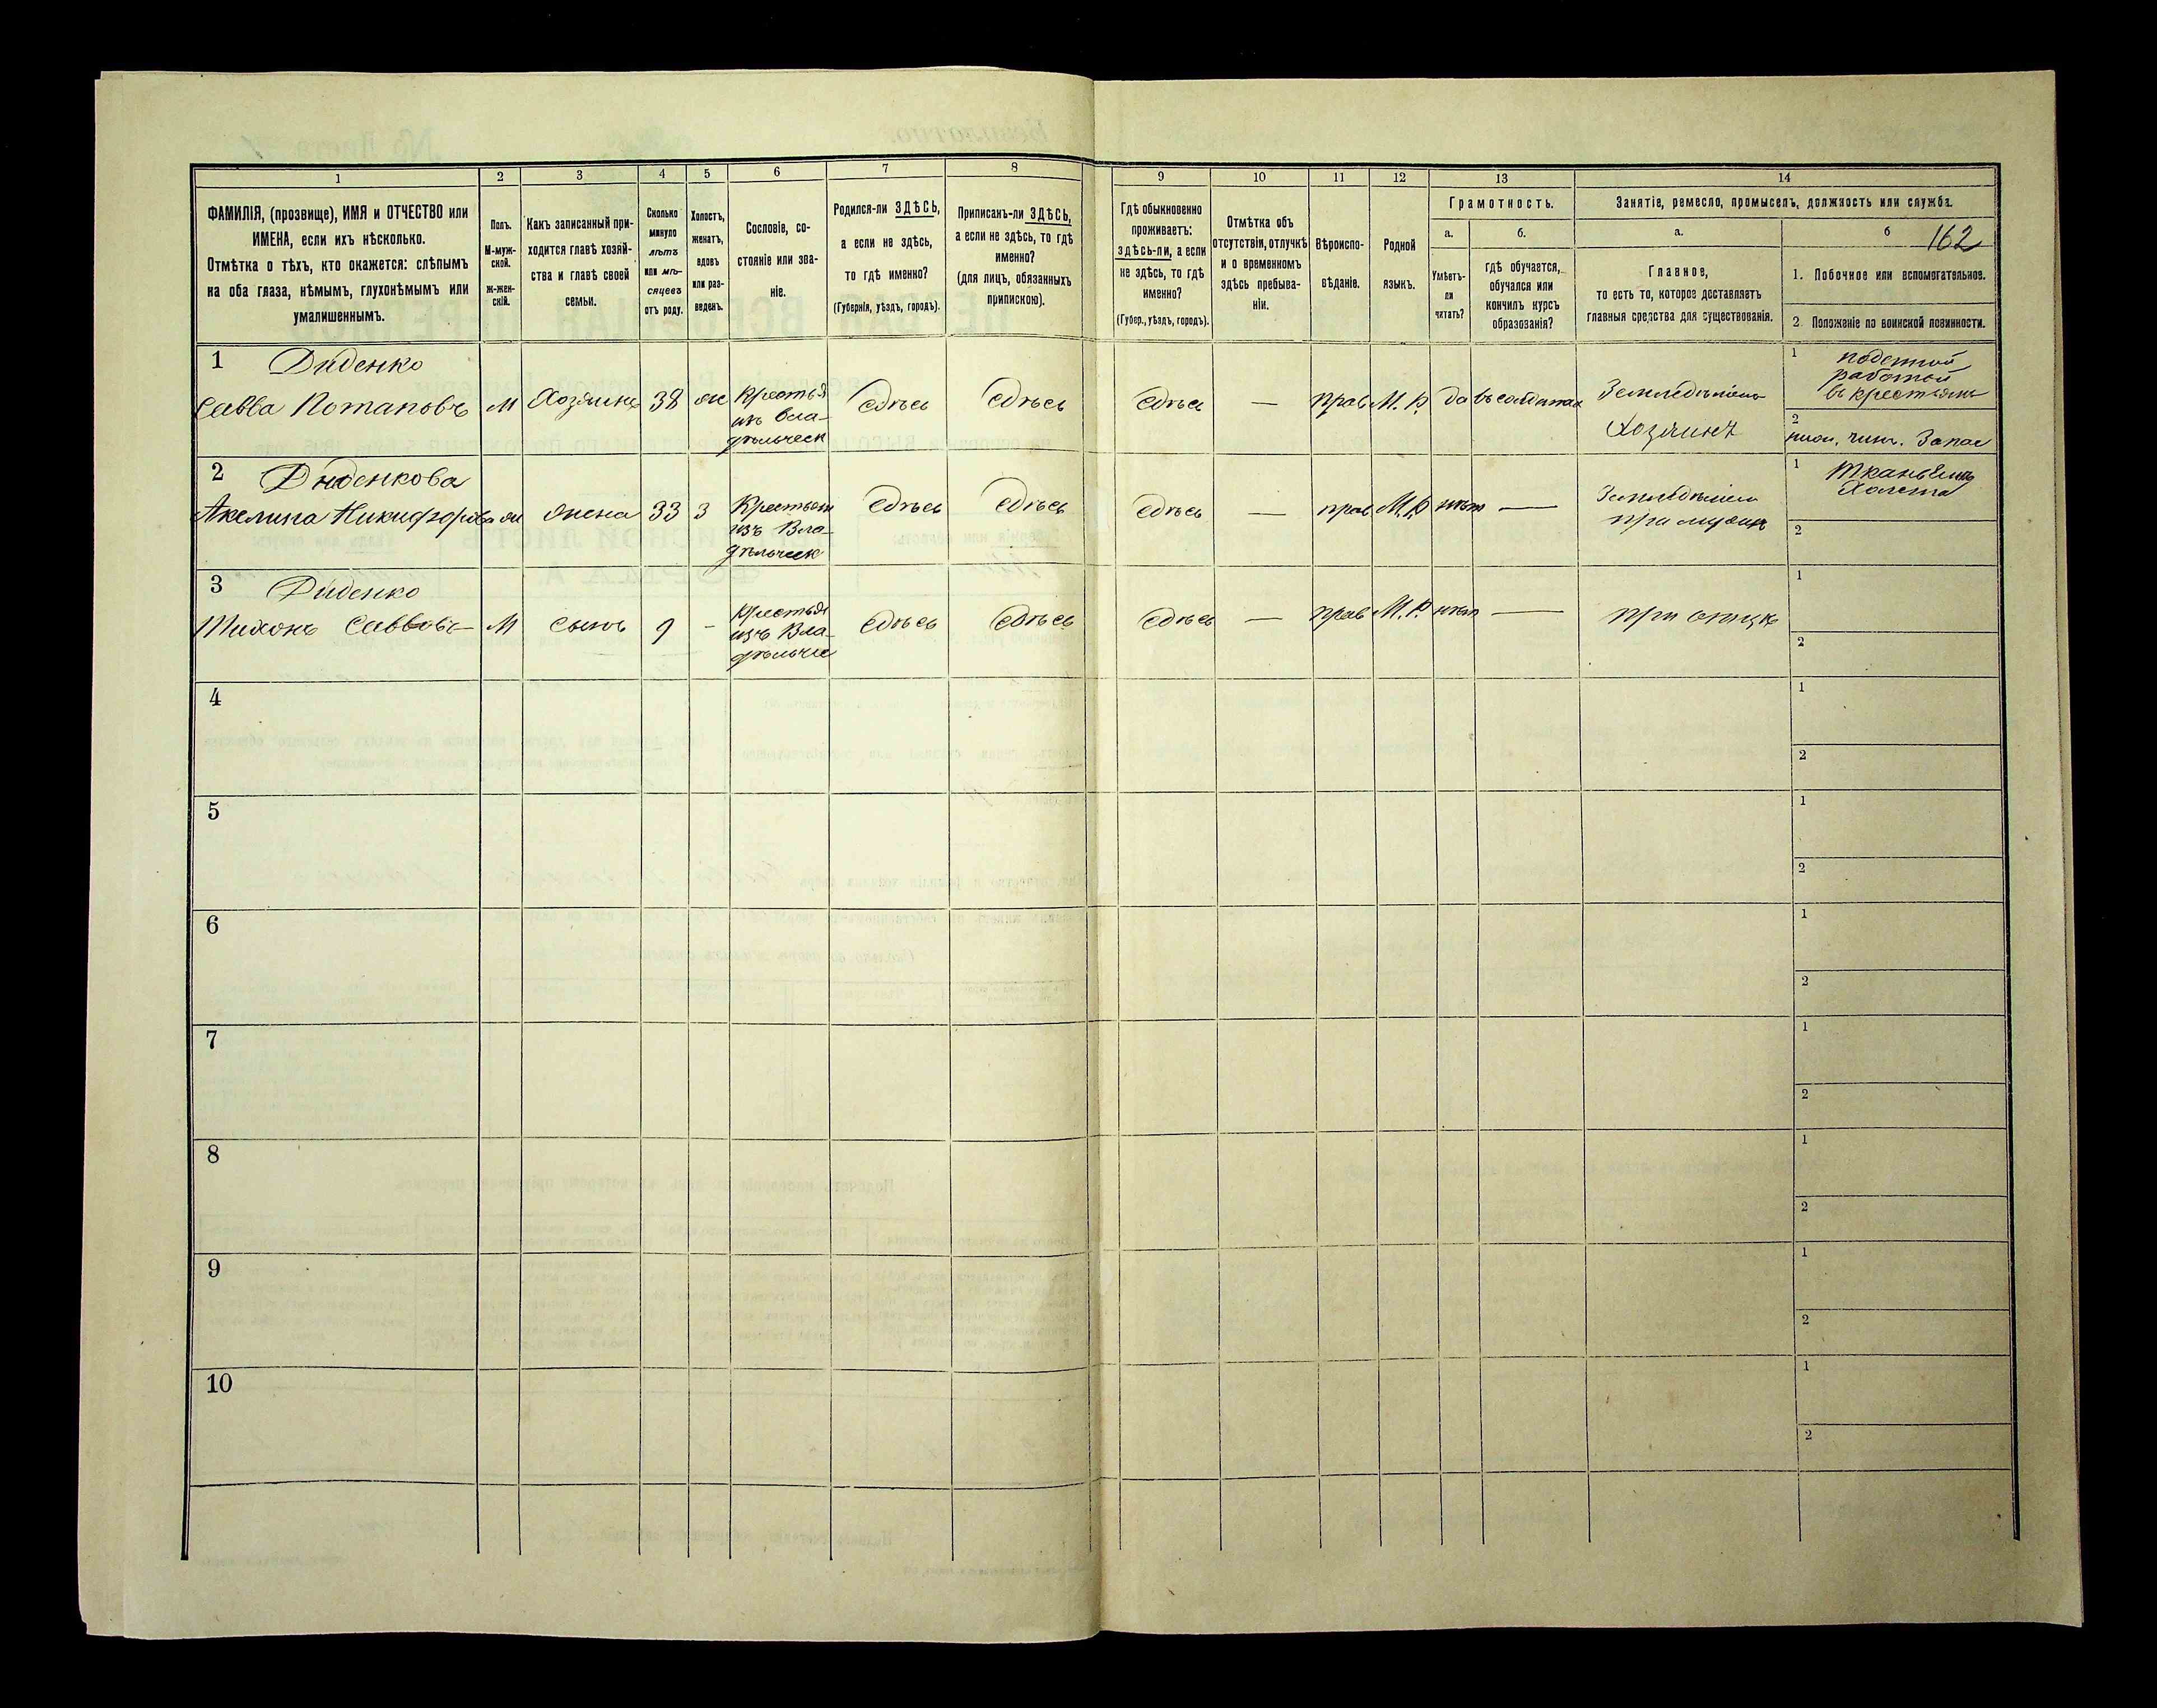 1
2
3
4
5
6
7
8
9
10
11
12
13
14
ФАМИЛІЯ, (прозвище), ИМЯ и ОТЧЕСТВО или
ИМЕНА, если ихъ нѣсколько.
Отмѣтка о тѣхъ, кто окажется: слѣпымъ
на оба глаза, нѣмымъ, глухонѣмымъ или
умалишеннымъ.
Полъ.
М-муж-
ской.
ж-жен-
скій.
Какъ записанный при-
ходится главѣ хозяй-
ства и главѣ своей
семьи.
Сколько
минуло
лѣтъ
или мѣ-
сяцевъ
отъ роду.
Холостъ,
женатъ,
вдовъ
или раз-
веденъ.
Сословіе, со-
стояніе или зва-
ніе.
Родился-ли ЗДѢСЬ,
а если не здѣсь,
то гдѣ именно?
(Губернія, уѣздъ, городъ).
Приписанъ-ли ЗДѢСЬ,
а если не здѣсь, то гдѣ
именно?
(для лицъ, обязанныхъ
припискою).
Гдѣ обыкновенно
проживаетъ:
здѣсь-ли, а если
не здѣсь, то гдѣ
именно?
(Губер., уѣздъ, городъ).
Отмѣтка объ
отсутствіи, отлучкѣ
и о временномъ
здѣсь пребыва-
ніи.
Вѣроиспо-
вѣданіе.
Родной
языкъ.
Грамотность.
а.
б.
Умѣетъ-
ли
читать?
гдѣ обучается,
обучался или
кончилъ курсъ
образованія?
Занятіе, ремесло, промыселъ, должность или служба.
а.
б
162
Главное,
то есть то, которое доставляетъ
главныя средства для существованія.
1. Побочное или вспомогательное.
2. Положеніе по воинской повинности.
1 Диденко
Савва Потаповъ М Хозяинъ 38 ж Крестья
изъ Вла-
дѣльческ
Здѣсь Здѣсь Здѣсь — прав М.Р. да въ солдатах
Земледѣліемъ
Хозяинъ
1 поденной
работой
въ крестьянъ
2 нижн. чинъ. Запас
2 Диденкова
Акелина Никифорова ж жена 33 З Крестьян
изъ Вла-
дѣльческ
Здѣсь Здѣсь Здѣсь — прав М.Р нѣт —
Земледѣліем
при мужѣ
1 тканьемъ
Холста
2
3 Диденко
Тихонъ Саввовъ М сынъ 9 - Крестья
изъ Вла-
дѣльче
Здѣсь Здѣсь Здѣсь — прав М.Р. нѣт —
при отцѣ
1
2
4
1
2
5
1
2
6
1
2
7
1
2
8
1
2
9
1
2
10
1
2